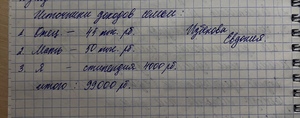 Источники доходов семьи:
1. Отец – 44 тыс. рб.
2. Мать – 50 тыс. рб.
3. Я – стипендия 4000 рб.
итого: 99000 рб.
Евдокия